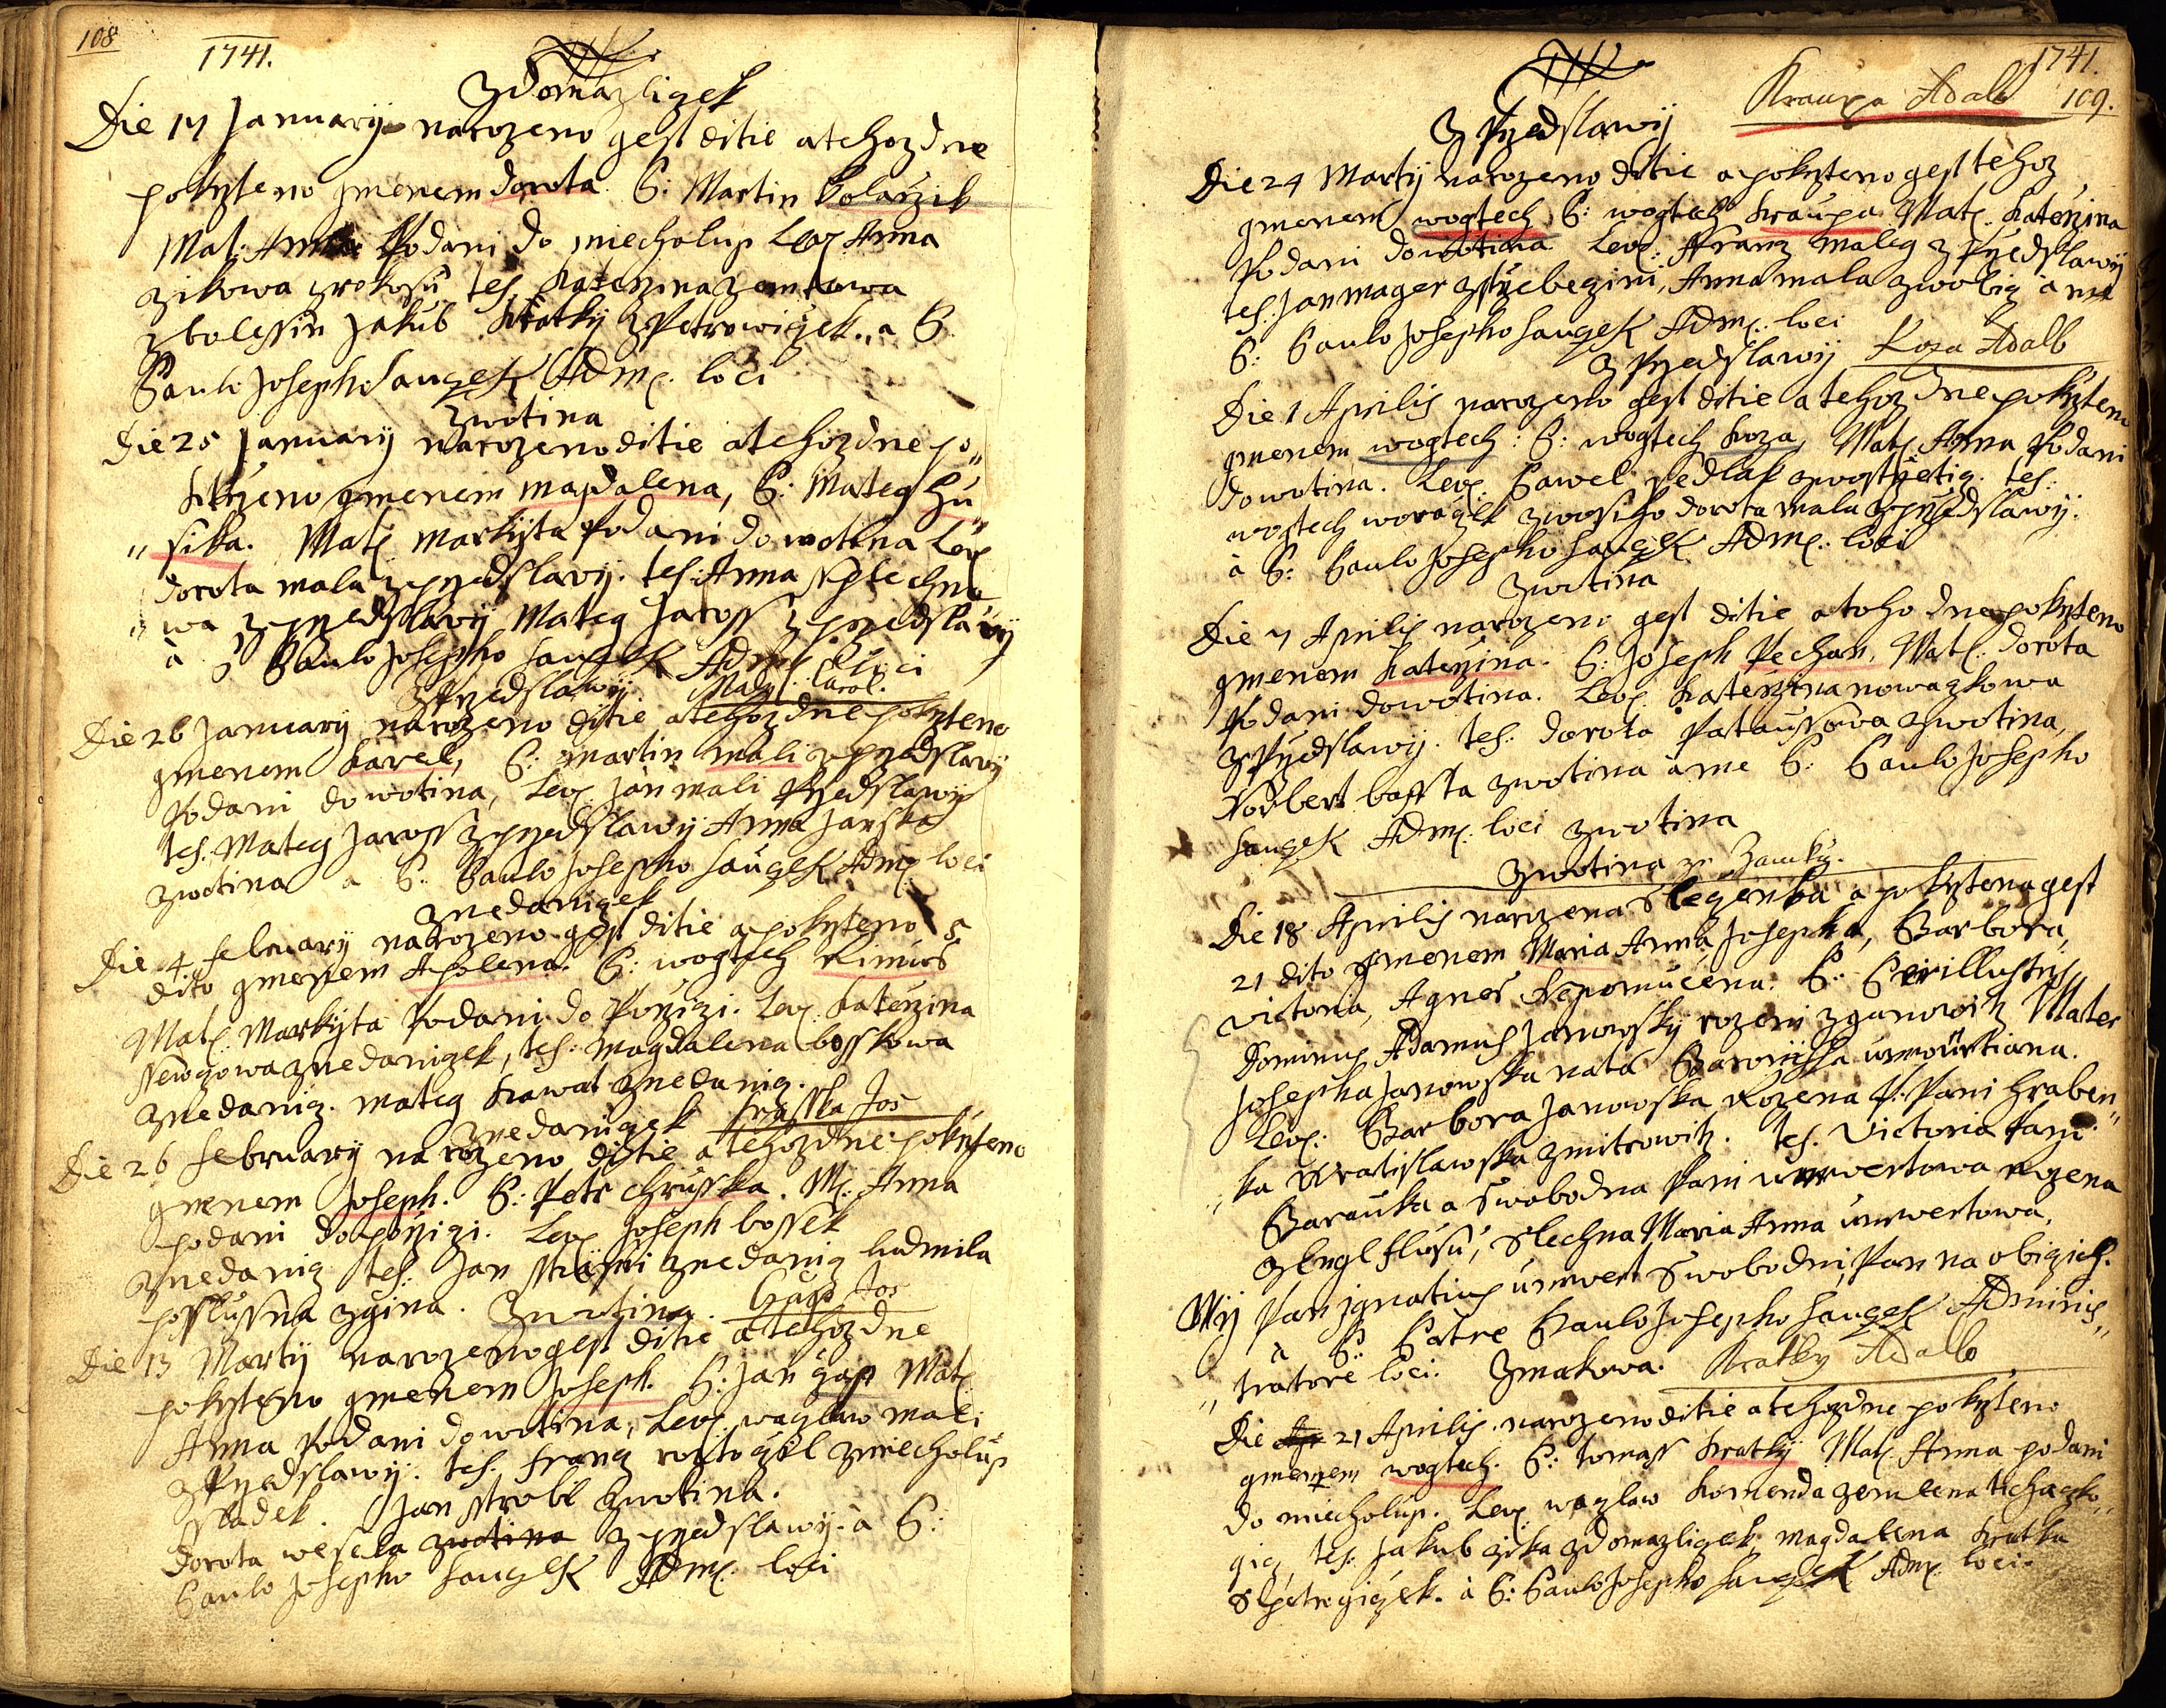 108
1741.
Zdomazligek
Die 17 January narozeno gest ditie a tehozdne
pokrzteno gmenem dorota. P: Martin kolarzik
Mat: Anna Podani do miecholup Lev: Anna
zikowa zrokosu tes: katerzina zemanowa
z bolessin Jakub kratky z Petrowiczek. a P.
Paulo Josepho Saugek Adm: loci
zwotina
Die 25 January narozeno ditie a tehozdne po„
krzteno gmenem magdalena, P: Mateg hu„
„sika. Mat: Markyta Podani do wotina Lev:
dorota mala z przedslawy. tes: Anna
„wa z przedslawy Mateg Jaross z przedslawy
à P Paulo Josepho Saugek Adm: loci
z Przedslawy. Maly Carol.
Die 26 January narozeno ditie a tehozdne pokrzteno
gmenem karel, P: martin mali z przedslawy
Podani do wotina, Lev: Jan mali Przedslawy
tes: Mateg Jaross z przedslawy Anna Janska
zwotina a P: Paulo Josepho Saugek Adm: loci
znedanigek
Die 4 February narozeno gest ditie a pokrzteno 5
dito gmenem Apolena. P: wogtech Rimus
Mat: Markyta Podani do Porzizi. Lev: katerzina
znedanigek, tes: Magdalena bosskowa
znedanig. mateg kawat znedanig.
znedanigek Hrusska Jos
Die 26 February narozeno ditie a tehozdne pokrzteno
gmenem Joseph. P: Petr chrusska. M: Anna
podani do porzizi. Lev: Joseph bossek
znedanig tes: Jan znedanig ludmila
posslussna zgina. zwotina. Gap Jos
Die 13 Marty narozeno gest ditie a tehozdne
pokrzteno gmenem Joseph. P: Jan gap Mat:
Anna Podani do wotina, Lev: waczlaw mali
z Przedslawy. tes: Franz zmiecholup
sladek. Jan strobl zwotina.
dorota wesela zwotina z przedslawy. à P:
Paulo Josepho Saugek Adm: loci
1741.
109.
z Przedslawy Kraupa Adalb
Die 24 Marty narozeno ditie a pokrzteno gest tehoz
gmenem wogtech P: wogtech kraupa Mat: katerzina
Podani do wotina Lev: Franz maleg z Przedslawy
tes: Jan mager, Anna mala a me
P: Paulo Josepho Saugek Adm: loci
z Przedslawy Koza Adalb
Die 1 Aprilis narozeno gest ditie a tehoz dne pokrzteno
gmenem wogtech: P: wogtech koza, Mat: Anna Podani
do wotina. Lev: Pawel sedlak tes:
wogtech worazek dorota mala z przedslawy.
à P: Paulo Josepho Saugek Adm: loci
zwotina
Die 7 Aprilis narozeno gest ditie a toho dne pokrzteno
gmenem katerzina. P: Joseph Pechan, Mat: dorota
Podani do wotina. Lev: katerzina nowazkowa
z Przedslawy. tes: dorota Pataussowa zwotina,
Norbert bassta zwotina à me P: Paulo Josepho
Saugek Adm: loci zwotina
zwotina ze Zamku.
Die 18 Aprilis narozena slegenka a pokrztena gest
21 dito gmenem Maria Anna, Josepha, Barbora,
Victoria, Agnes Nepomucena. P: Perillustris
Dominus Adamus Janowsky rozeni zganowitz Mater
Josepha Janowska nata Baronissa unwurtiana.
Lev: Barbora Janowska Rozena P: Pani Hraben„
„ka Wratislawska zmitrowitz. tes: Victoria Pani
Barauka a Swobodna Pani unwertowa rozena
z Englflusu, slechna Maria Anna unwertowa,
Wij Pan Ignatius unwert Swobodni Pan na obizich.
à P: Patre Paulo Josepho Saugek Adminis„
„tratore loci. Zmakowa. Kratky Adalb
Die 21 Aprilis narozeno ditie a tehozdne pokrzteno
gmenem wogtech. P: tomass kratky Mat: Anna podani
do miecholup. Lev: waczlaw komenda
gig, tes: Jakub zika zdomazligek, magdalena kratka
à P: Paulo Josepho Saugek Adm: loci.